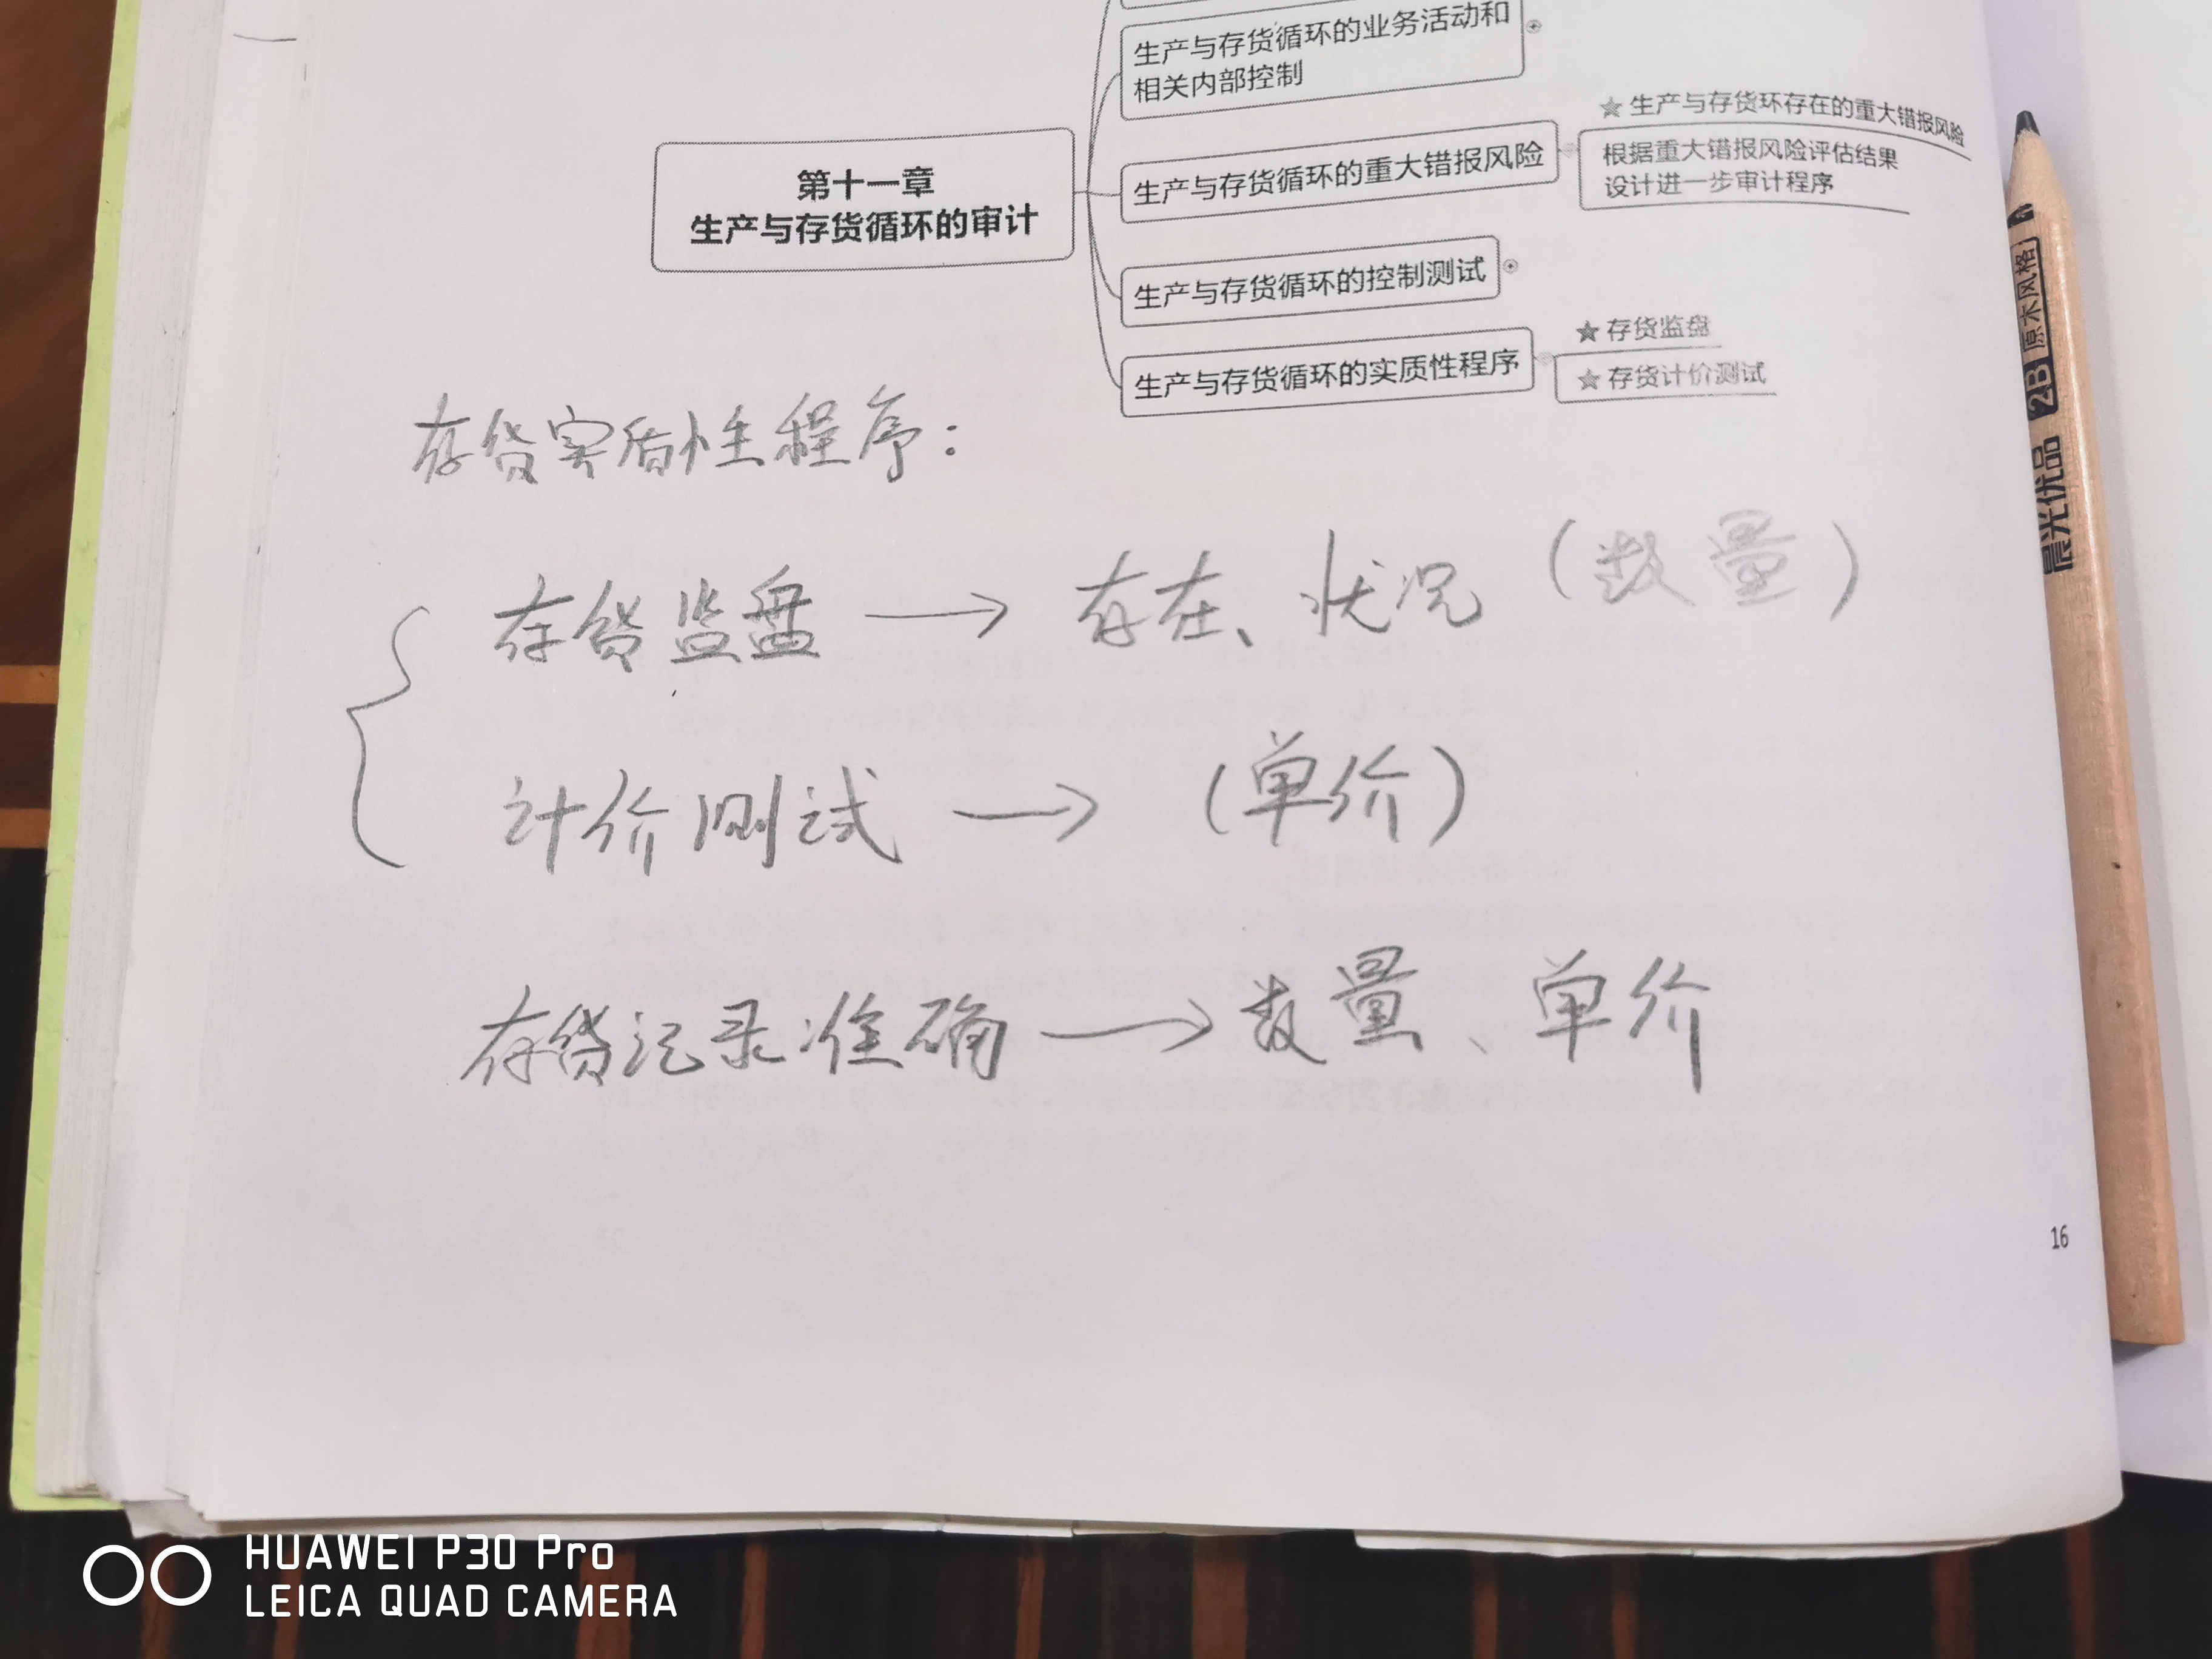 生产与存货循环的业务活动和
相关内部控制
★生产与存货环存在的重大错报风险
根据重大错报风险评估结果
设计进一步审计程序
生产与存货循环的重大错报风险
第十一章
生产与存货循环的审计
生产与存货循环的控制测试
★存货监盘
★存货计价测试
生产与存货循环的实质性程序
存货实质性程序:
存货监盘→存在、状况(数量)
计价测试→(单价)
存货记录准确→数量、单价
16
晨光优品 2B 原木风格
HUAWEI P30 Pro
LEICA QUAD CAMERA